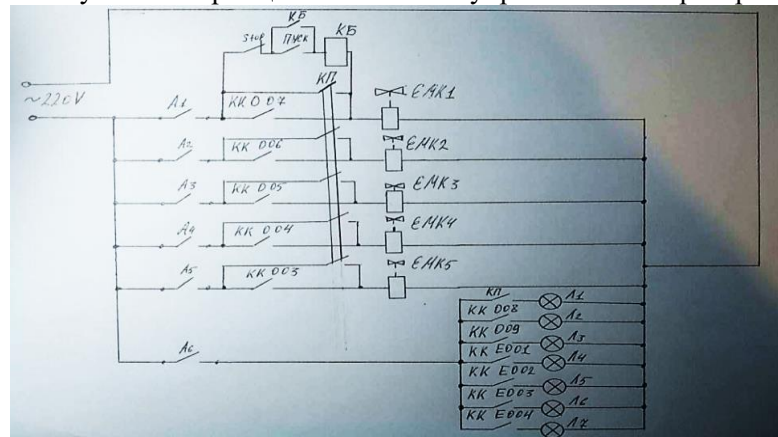 КБ
Stop ПУСК КБ
КП
~220V
А1 КК 007 ЕМК1
А2 КК 006 ЕМК2
А3 КК 005 ЕМК3
А4 КК 004 ЕМК4
А5 КК 003 ЕМК5
КП Л1
КК 008 Л2
КК 009 Л3
А6 КК Е001 Л4
КК Е002 Л5
КК Е003 Л6
КК Е004 Л7